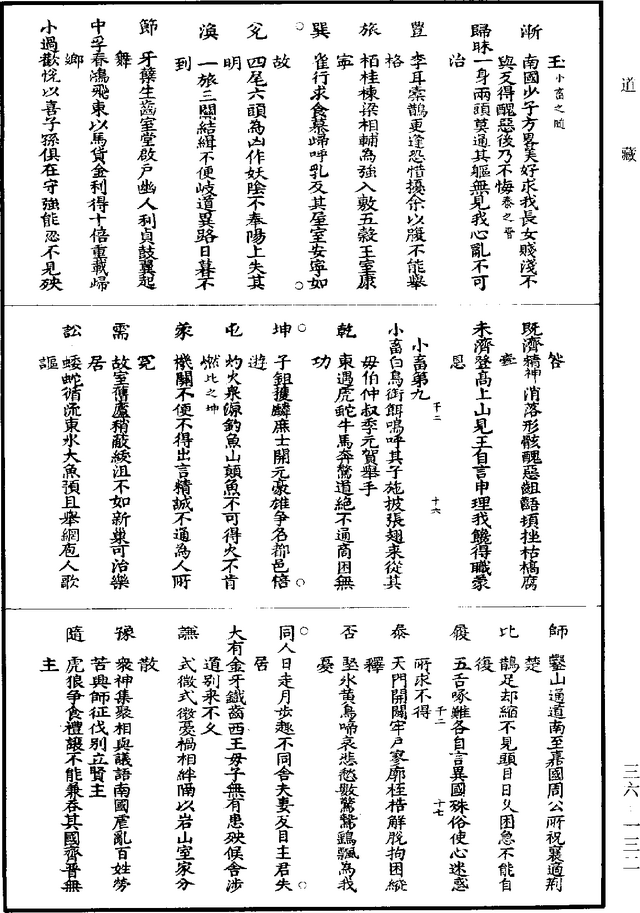 道藏
王小畜之隨
漸 南國少子方畧美好求我長女賤淺不
與反得醜惡後乃不悔泰之晉
歸昧一身兩頭莫適其軀無見我心亂不可
治
豐 李耳彙鵲更逢恐惜擾余以腹不能舉
格
旅 栢桂棟梁相輔為強入敷五榖王室康
寧
巽 雀行求食慕歸呼乳反其屋室安寧如
故
兌 四尾六頭為凶作妖陰不奉陽上失其
明
渙 一旅三關結緝不便岐道異路日暮不
到
節 牙蘗生齒室堂啟戶幽人利貞鼓翼起
舞
中孚春鴻飛東以馬貨金利得十倍重載歸
鄉
小過歡悅以喜子孫俱在守強能忍不見殃
咎
既濟精神消落形骸醜惡齟齬頃挫枯槁腐
蠹
未濟登高上山見王自言申理我饞得職蒙
恩
小畜第九 千二 十六
小畜白鳥銜餌鳴呼其子施披張翅来從其
毋伯仲叔季元賀舉手
乾 東遇虎蛇牛馬奔驚道絶不通商困無
功
坤 子鉏擭麟庶士開元豪雄爭名都邑倍
遊
屯 灼火泉源釣魚山顛魚不可得火不肯
燃比之坤
蒙 機關不便不得出言精誠不通為人所
冤
需 故室舊廬稍敝綏沮不如新巢可治樂
居
訟 蝼蛇循流東氷大魚預且舉網庖人歌
謳
師 鑿山通道南至嘉國周公所祝襄適荆
楚
比 鵲足却縮不見頭目日夂困急不能自
復
履 五舌啄雖各自言異國殊俗使心迷惑
所求不得 千二 十七
泰 天門開闢牢戶寥廓桎梏解脫拘囬縱
釋
否 堅氷黃鳥啼哀悲愁數驚鷙鷂飄為我
憂
同人日走月步趣不同舍夫妻反目主君失
居
大有金牙鐵齒西王毋子無有患殃候舍涉
道别来不久
謙 式微式徵憂禍相絆隔以岩山室家分
散
豫 衆神集聚相與議語南國虐亂百姓勞
苦興師征伐别立賢主
隨 虎狼爭食禮讓不能兼吞其國齊晉無
主
三六‧一三二